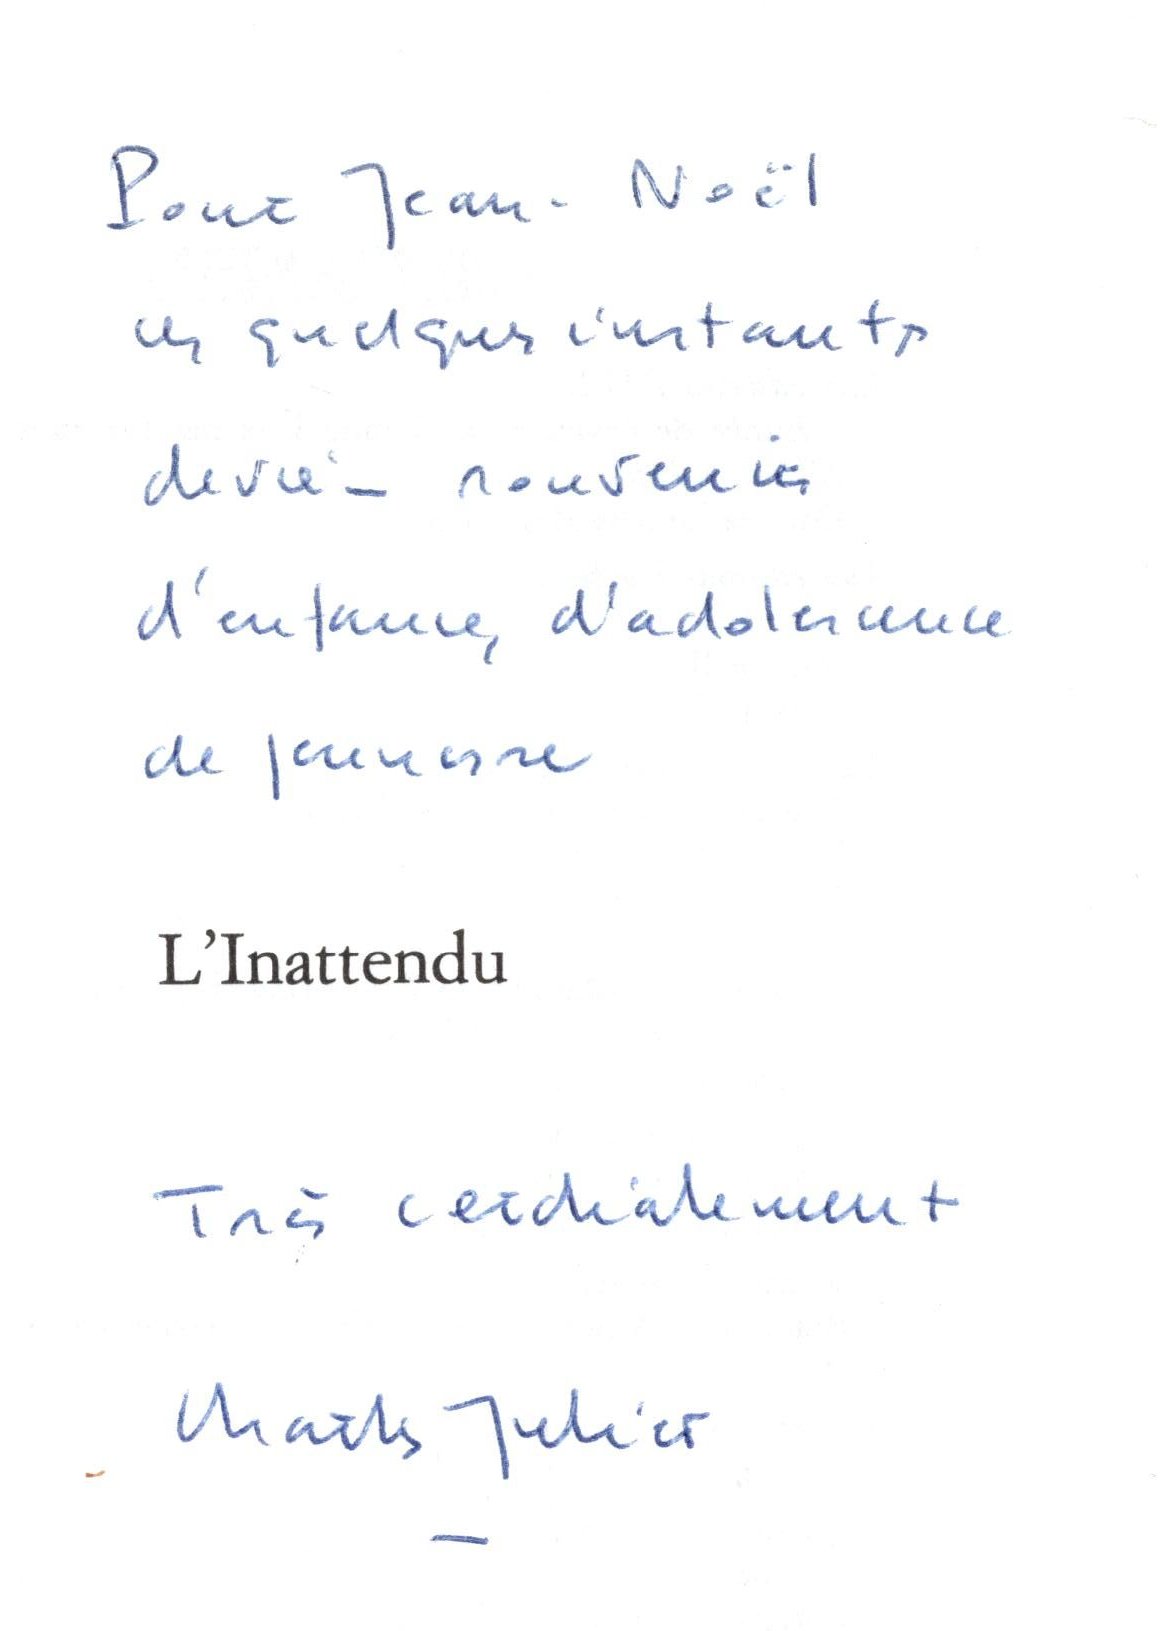 Pour Jean-Noël
ces quelques instants
de vie – souvenirs
d'enfance, d'adolescence
de jeunesse
L'Inattendu
Très cordialement
Charles Juliet